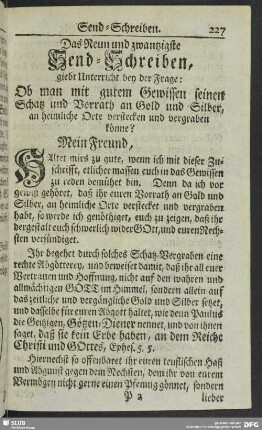 Send-Schreiben. 227
Das Neun und zwantzigste
Send-Schreiben,
giebt Unterricht bey der Frage:
Ob man mit gutem Gewissen seinen
Schatz und Vorrath an Gold und Silber,
an heimliche Orte verstecken und vergraben
könne?
Mein Freund,
HAltet mirs zu gute, wenn ich mit dieser Zu-
schrifft, etlicher massen euch in das Gewissen
zu reden bemühet bin. Denn da ich vor
gewiß gehöret, daß ihr euren Vorrath an Gold und
Silber, an heimliche Orte verstecket und vergraben
habt, so werde ich genöthiget, euch zu zeigen, daß ihr
dergestalt euch schwerlich wider GOtt, und euren Nech-
sten versündiget.
Ihr begehet durch solches Schatz-Vergraben eine
rechte Abgötterey, und beweiset damit, daß ihr all euer
Vertrauen und Hoffnung, nicht auf den wahren und
allmächtigen GOTT im Himmel, sondern allein auf
das zeitliche und vergängliche Gold und Silber setzet,
und dasselbe für euren Abgott haltet, wie denn Paulus
die Geitzigen, Götzen-Diener nennet, und von ihnen
saget, daß sie kein Erbe haben, an dem Reiche
Christi und GOttes, Ephes. 5. 5.
Hiernechst so offenbaret ihr euren teuflischen Haß
und Abgunst gegen dem Nechsten, dem ihr von eurem
Vermögen nicht gerne einen Pfennig gönnet, sondern
P 2 lieber
SLUB
DFG